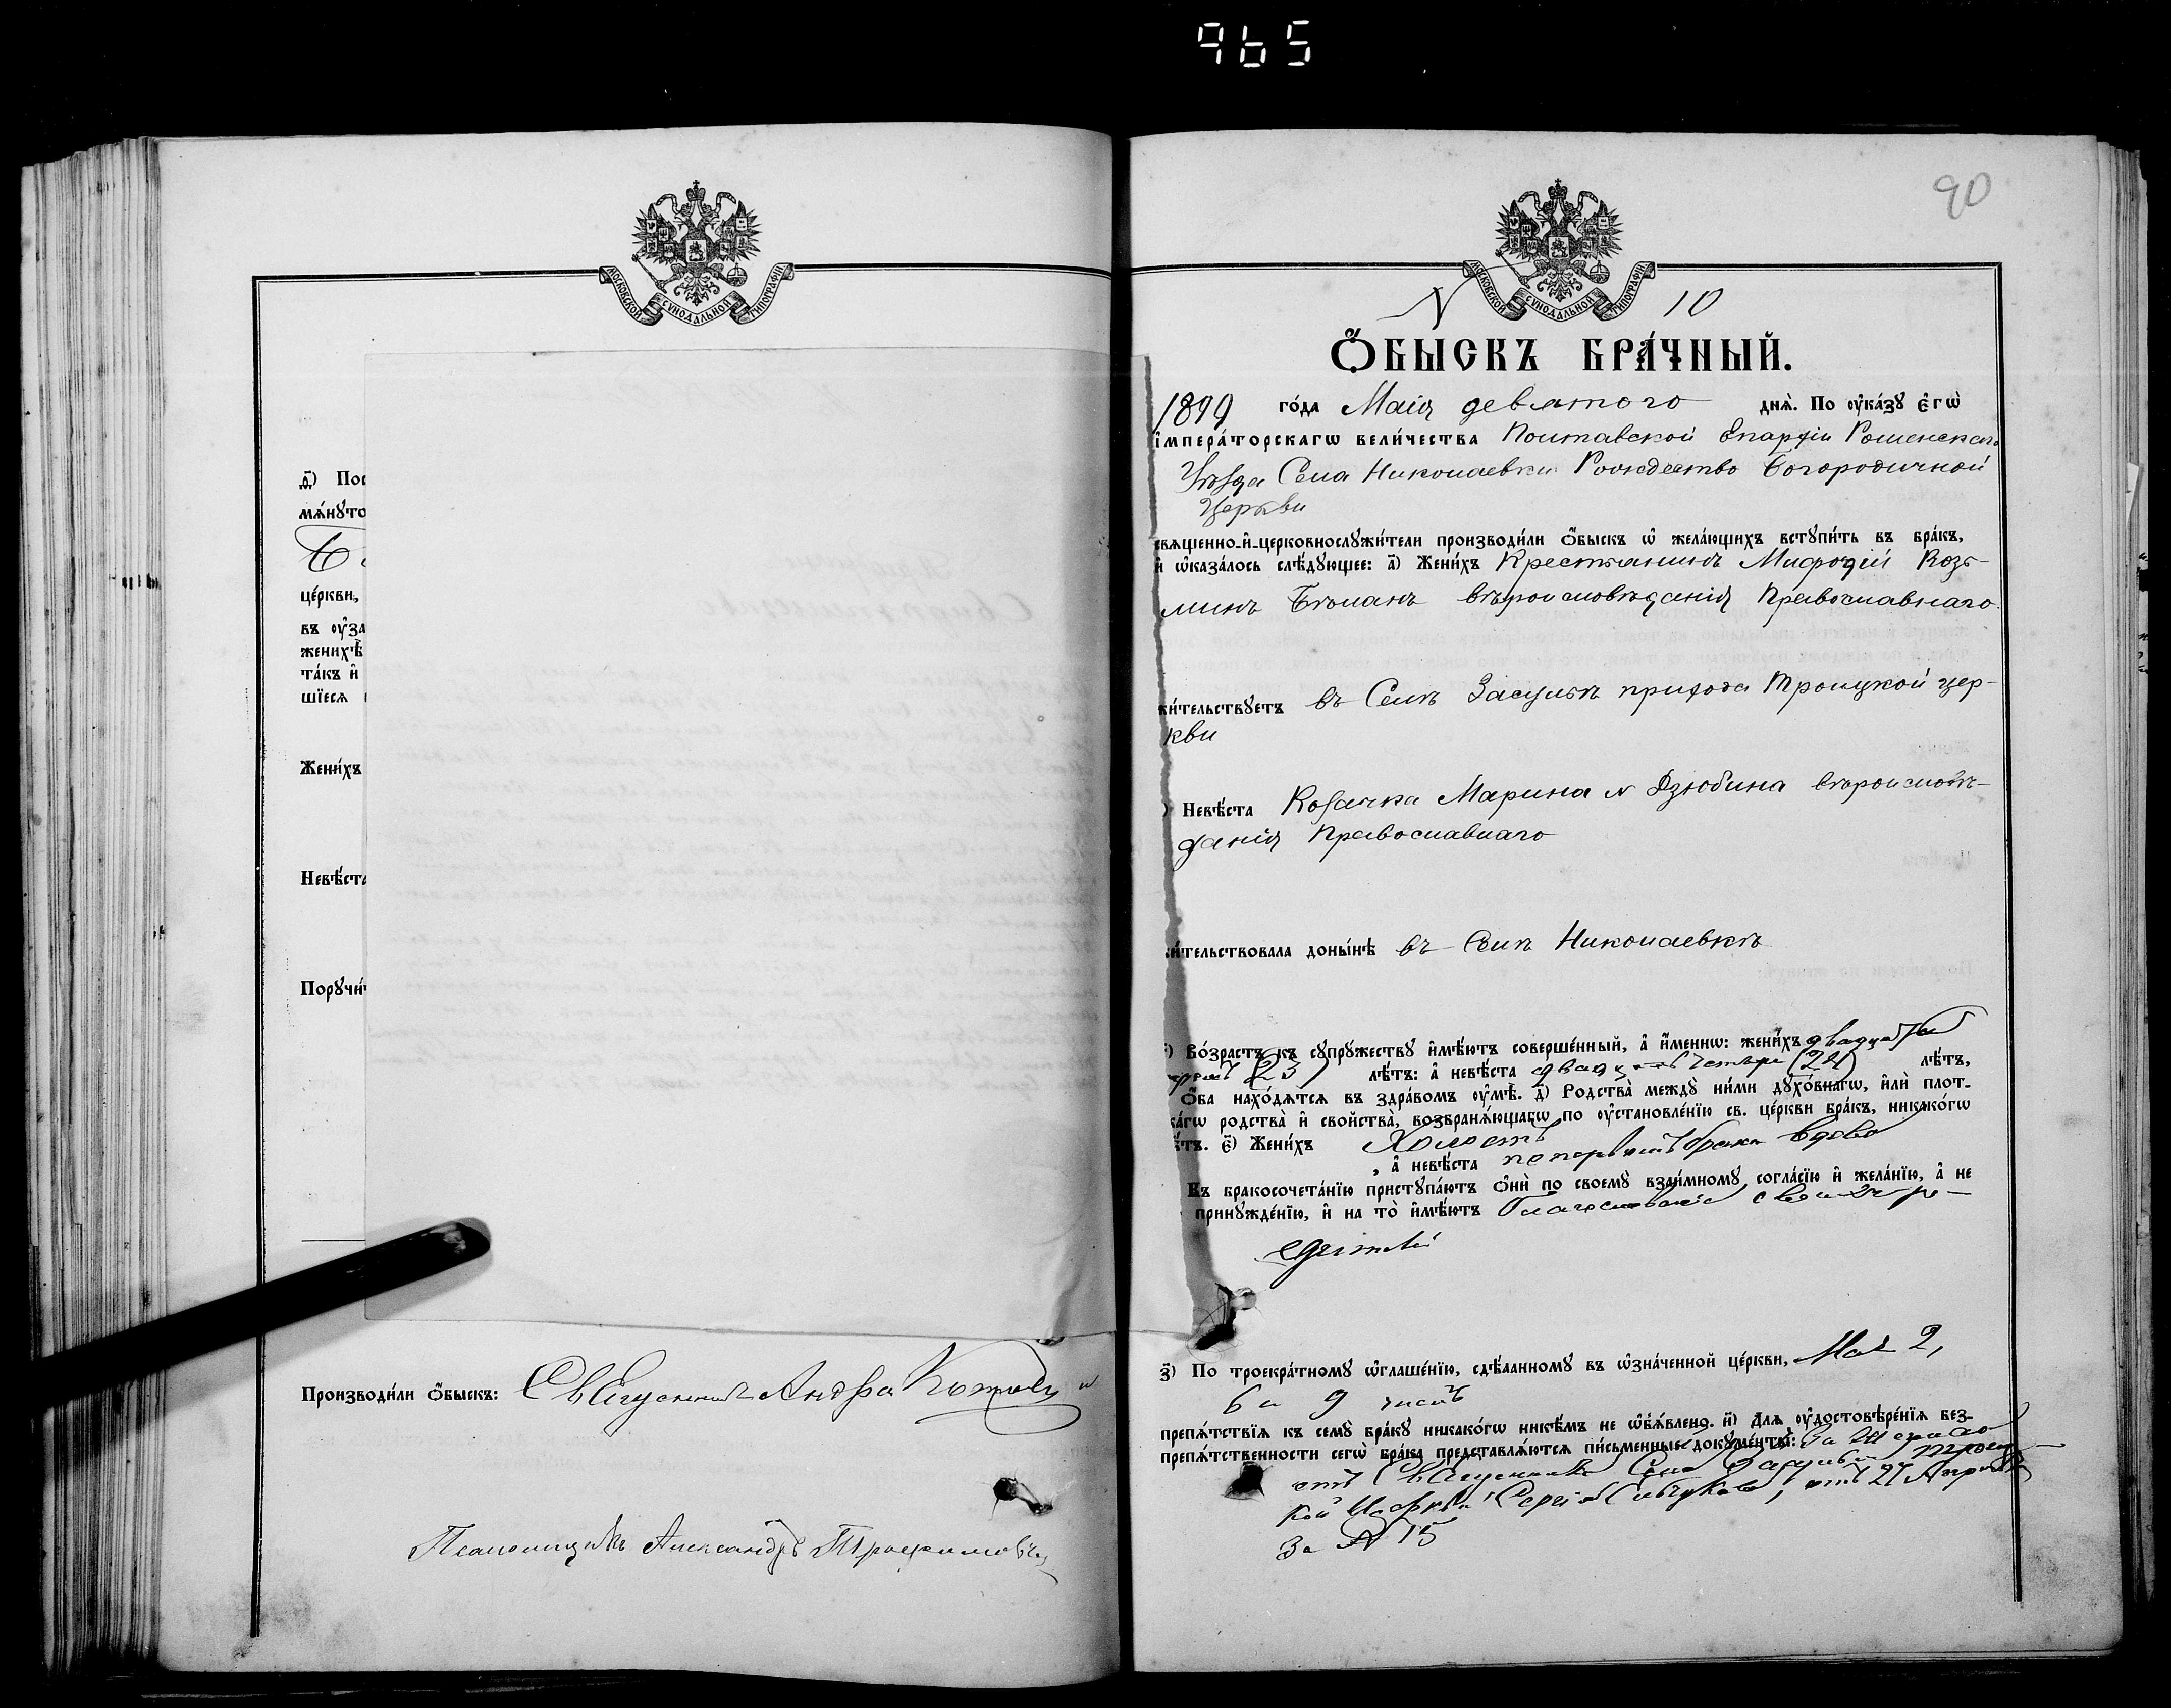 965
МОСКОВСКОЙ СѴНОДАЛЬНОЙ ТИПОГРАФІИ
д҃) Пос
мѧ́нꙋто
це́ркви,
въ оу҆за
жених
та́къ и҆
шїесѧ
Жени́хъ
Невѣ́ста
Порꙋчи́
Производи́ли ѻ҆́быскъ: Андр
Псаломщикъ Александръ Трофимовичъ
90
МОСКОВСКОЙ СѴНОДАЛЬНОЙ ТИПОГРАФІИ
N 10
Ѻ҆́БЫСКЪ БРА́ЧНЫЙ.
1899 го́да Маія девятого днѧ̀. По оу҆ка́зꙋ є҆гѡ̀
і҆мпера́торскагѡ вели́чества Полтавской Епархіи Роменскаго
Уѣзда Села Николаевки Рождество Богородичной
Церкви
свѧщенно-и҆-церковнослꙋжи́тели производи́ли ѻ҆́быскъ ѡ҆ жела́ющихъ встꙋпи́ть въ бра́къ,
и҆ ѡ҆каза́лось слѣ́дꙋющее: а҃) Жени́хъ Крестьянинъ Мифодій Козь-
минъ вѣроисповѣданія Православнаго
жи́тельствꙋетъ въ Селѣ Засульѣ прихода Троицкой цер-
кви
) Невѣ́ста Козачка Марина N Дзюбина вѣроисповѣ-
данія Православнаго
жи́тельствовала доны́нѣ въ Селѣ Николаевкѣ
) Во́зрастъ къ сꙋпрꙋ́жествꙋ и҆мѣ́ютъ соверше́нный, а҆ и҆́меннѡ: жени́хъ двадцати
трехъ (23) лѣ́тъ: а҆ невѣ́ста двадцать четыре (24) лѣ́тъ,
ѻ҆́ба нахо́дѧтсѧ въ здра́вомъ оу҆мѣ̀. д҃) Родства̀ междꙋ̀ ни́ми дꙋхо́внагѡ, и҆лѝ плот-
ска́гѡ родства̀ и҆ сво́йства̀, возбранѧ́ющагѡ по оу҆становле́нїю св. це́ркви бра́къ, никако́гѡ
нѣ́тъ. є҃) Жени́хъ Холостъ
, а҆ невѣ́ста по первомъ бракѣ вдова
Къ бракосочета́нїю пристꙋпа́ютъ ѻ҆нѝ по своемꙋ̀ взаи́мномꙋ согла́сїю и҆ жела́нїю, а҆ не
принꙋжде́нїю, и҆ на то̀ и҆мѣ́ютъ Благословеніе своихъ ро-
дителей
з҃) По троекра́тномꙋ ѡ҆глаше́нїю, сдѣ́ланномꙋ въ ѡ҆зна́ченной це́ркви, Мая 2,
6 и 9 числъ
препѧ́тствїѧ къ семꙋ̀ бра́кꙋ никако́гѡ никѣ́мъ не ѡ҆б̾ѧ́влено. и҃) Длѧ оу҆достовѣре́нїѧ без-
препѧ́тственности сегѡ̀ бра́ка представлѧ́ютсѧ пи́сьменные докꙋме́нты:
отъ Священника Села Засулья Троиц-
кой Церкви Сергія отъ 27 Апрѣля
За N 15